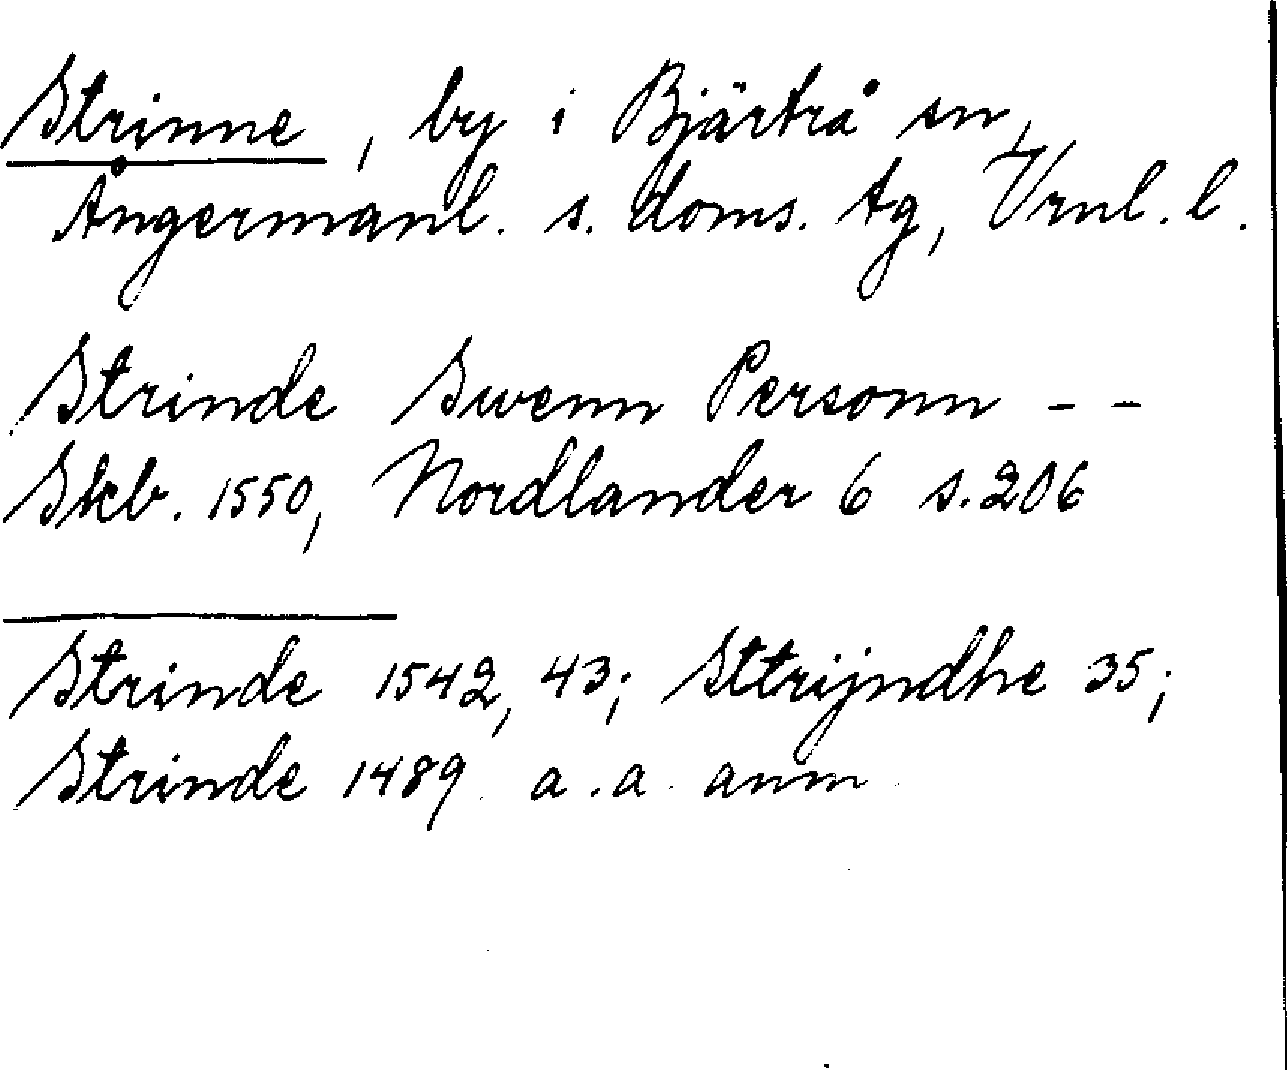 Strinne, by i Bjärtrå sn,
Ångermanl. s. doms. tg, Vrnl. l.
Strinde Swenn Personn - -
Skb. 1550, Nordlander 6 s. 206
Strinde 1542, 43; Sttrijndhe 35;
Strinde 1489 a. a. anm